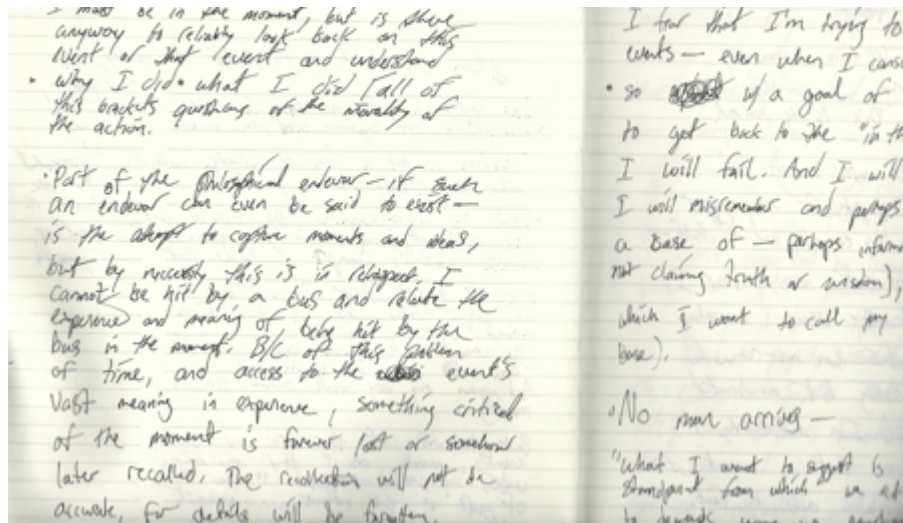 I must be in the moment, but is there
anyway to reliably look back on this
event or that event and understand
• why I did what I did [all of
this brackets questions of the morality of
the action.
• Part of the philosophical endevor – if such
an endevor can even be said to exist –
is the attempt to capture moments and ideas,
but by necessity this is in retrospect. I
cannot be hit by a bus and relate the
experience and meaning of being hit by the
bus in the moment. B/C of this problem
of time, and access to the event's
vast meaning in experience, something critical
of the moment is forever lost or somehow
later recalled. The recollection will not be
accurate, for details will be forgotten.
I fear that I'm trying to
events – even when I
• so w/ a goal of
to get back to the "in th
I will fail. And I will
I will misremember and perhaps
a base of – perhaps
not claiming truth or wisdom),
which I want to call my
base).
• No man arrives –
"What I want to suggest is
standpoint from which we
to